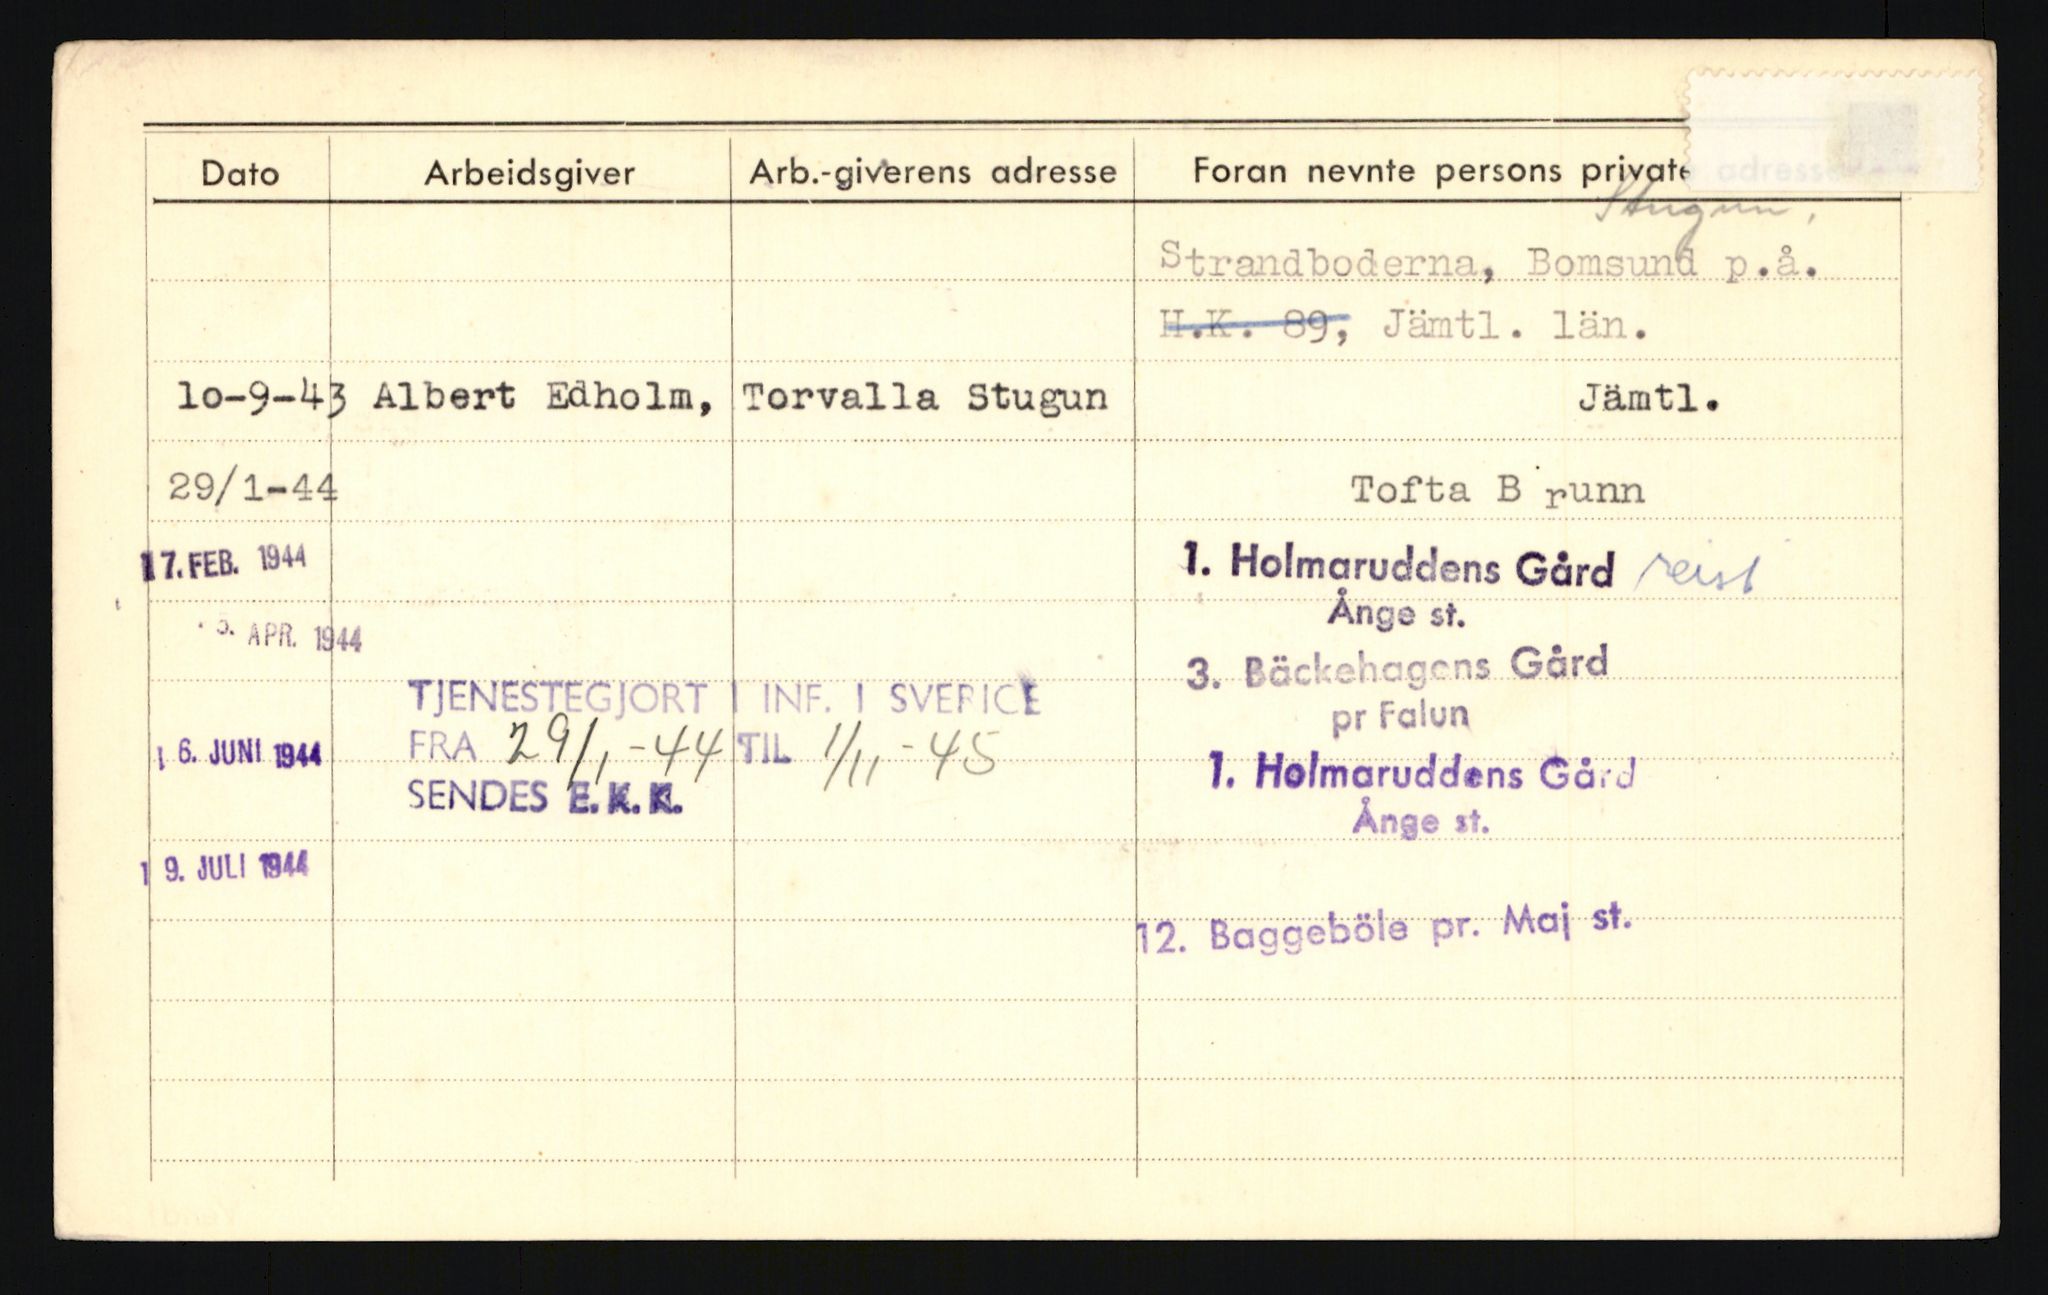 Dato Arbeidsgiver Arb.-giverens adresse Foran nevnte persons private adresse
Stugun,
Strandboderna, Bomsund p.å.
H.K. 89, Jämtl. län.
lo-9-43 Albert Edholm, Torvalla Stugun Jämtl.
29/1-44 Tofta Brunn
17. FEB. 1944 1. Holmaruddens Gård reist
Ånge st.
5. APR. 1944 3. Bäckehagens Gård
TJENESTEGJORT I INF. I SVERIGE
pr Falun
16. JUNI 1944 FRA 29/1-44 TIL 1/11-45 1. Holmaruddens Gård
SENDES E.K.K.
Ånge st.
19. JULI 1944
12. Baggeböle pr. Maj st.